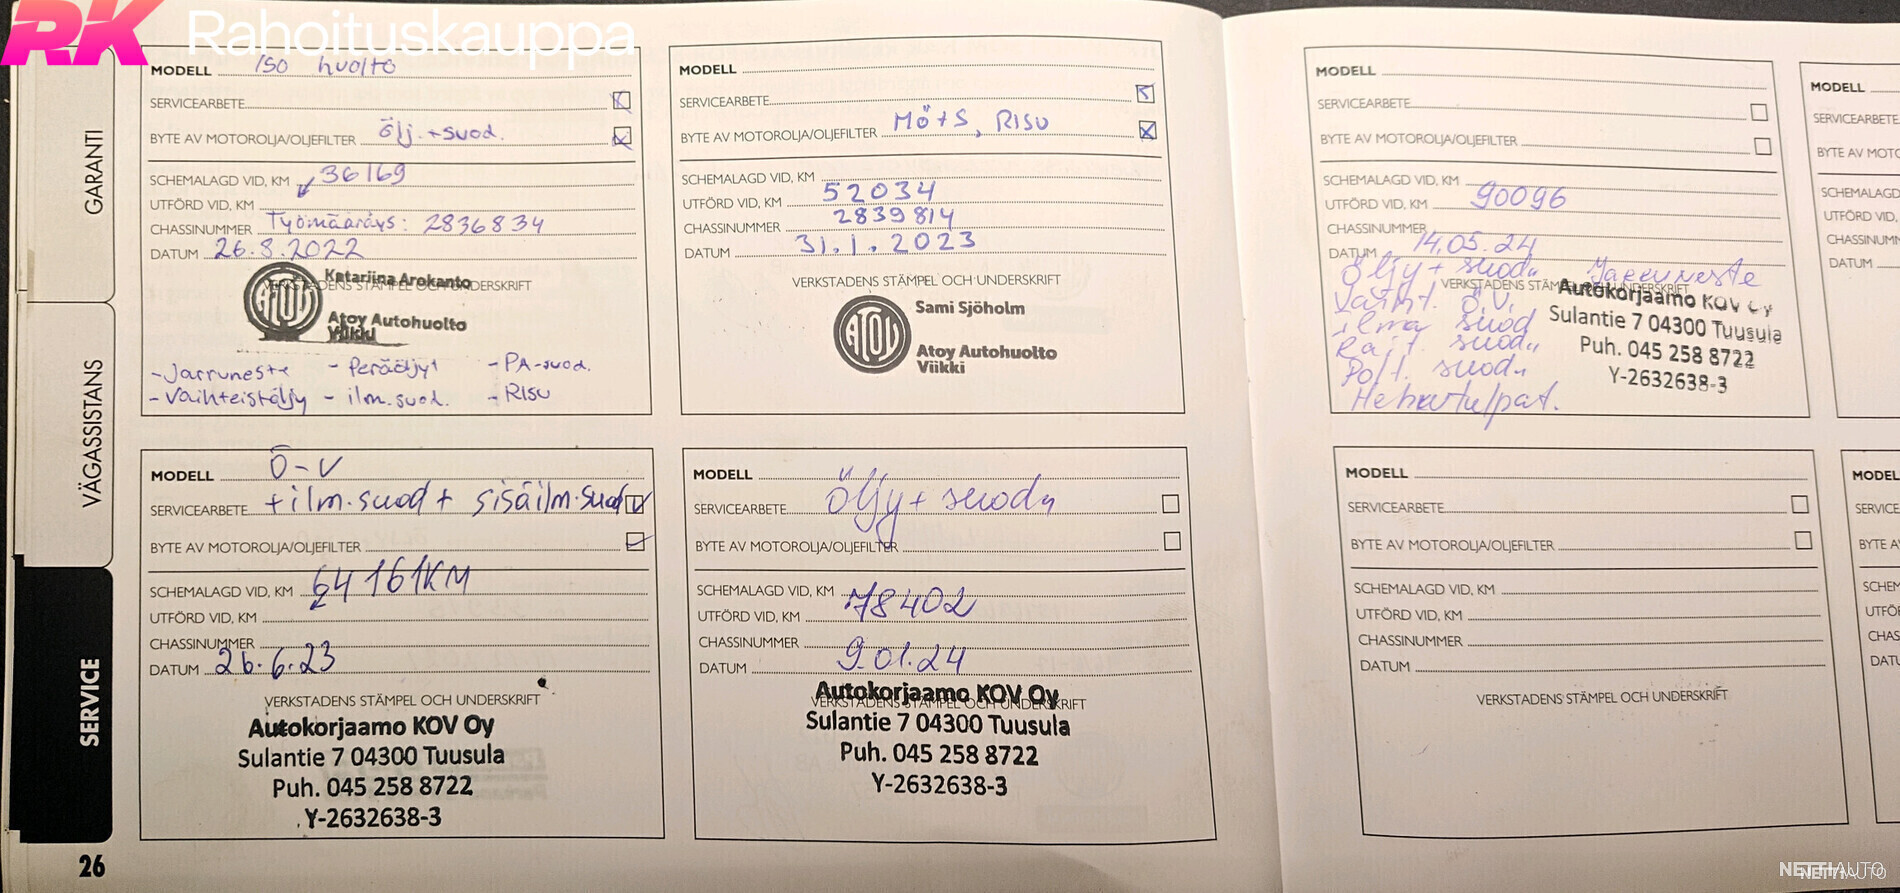 RK Rahoituskauppa
GARANTI
VÄGASSISTANS
SERVICE
MODELL Iso huolto
SERVICEARBETE
BYTE AV MOTOROLJA/OLJEFILTER Ölj. + suod.
SCHEMALAGD VID, KM 36169
UTFÖRD VID, KM
CHASSINUMMER Työmääräys: 2836834
DATUM 26.8.2022
VERKSTADENS STÄMPEL OCH UNDERSKRIFT
Katariina Arokanto
ATOY
Atoy Autohuolto
Viikki
- Jarruneste - Peräöljyt - PA-suod.
- Vaihteistöljy - ilm.suod. - RISU
MODELL
SERVICEARBETE
BYTE AV MOTOROLJA/OLJEFILTER MÖ+S, RISU
SCHEMALAGD VID, KM
UTFÖRD VID, KM 52034
CHASSINUMMER 2839814
DATUM 31.1.2023
VERKSTADENS STÄMPEL OCH UNDERSKRIFT
Sami Sjöholm
ATOY
Atoy Autohuolto
Viikki
MODELL
SERVICEARBETE
BYTE AV MOTOROLJA/OLJEFILTER
SCHEMALAGD VID, KM
UTFÖRD VID, KM 90096
CHASSINUMMER
DATUM 14.05.24
Öljy + suod. Jarruneste
VERKSTADENS STÄMPEL OCH UNDERSKRIFT
Vaiht. Ö.V.
ilma suod
Rait. suod.
Polt. suod.
Hehkutulpat.
Autokorjaamo KOV Oy
Sulantie 7 04300 Tuusula
Puh. 045 258 8722
Y-2632638-3
MODELL
SERVICEARBETE
BYTE AV MOTO
SCHEMALAGD
UTFÖRD VID,
CHASSINUMM
DATUM
MODELL Ö-V
SERVICEARBETE + ilm.suod + sisäilm.suod
BYTE AV MOTOROLJA/OLJEFILTER
SCHEMALAGD VID, KM 64161KM
UTFÖRD VID, KM
CHASSINUMMER
DATUM 26.6.23
VERKSTADENS STÄMPEL OCH UNDERSKRIFT
Autokorjaamo KOV Oy
Sulantie 7 04300 Tuusula
Puh. 045 258 8722
Y-2632638-3
MODELL
SERVICEARBETE Öljy + suod.
BYTE AV MOTOROLJA/OLJEFILTER
SCHEMALAGD VID, KM
UTFÖRD VID, KM 78402
CHASSINUMMER
DATUM 9.01.24
VERKSTADENS STÄMPEL OCH UNDERSKRIFT
Autokorjaamo KOV Oy
Sulantie 7 04300 Tuusula
Puh. 045 258 8722
Y-2632638-3
MODELL
SERVICEARBETE
BYTE AV MOTOROLJA/OLJEFILTER
SCHEMALAGD VID, KM
UTFÖRD VID, KM
CHASSINUMMER
DATUM
VERKSTADENS STÄMPEL OCH UNDERSKRIFT
MODEL
SERVICE
BYTE A
SCHEM
UTFÖ
CHAS
DATU
26
NETTIAUTO
NETTIAUTO